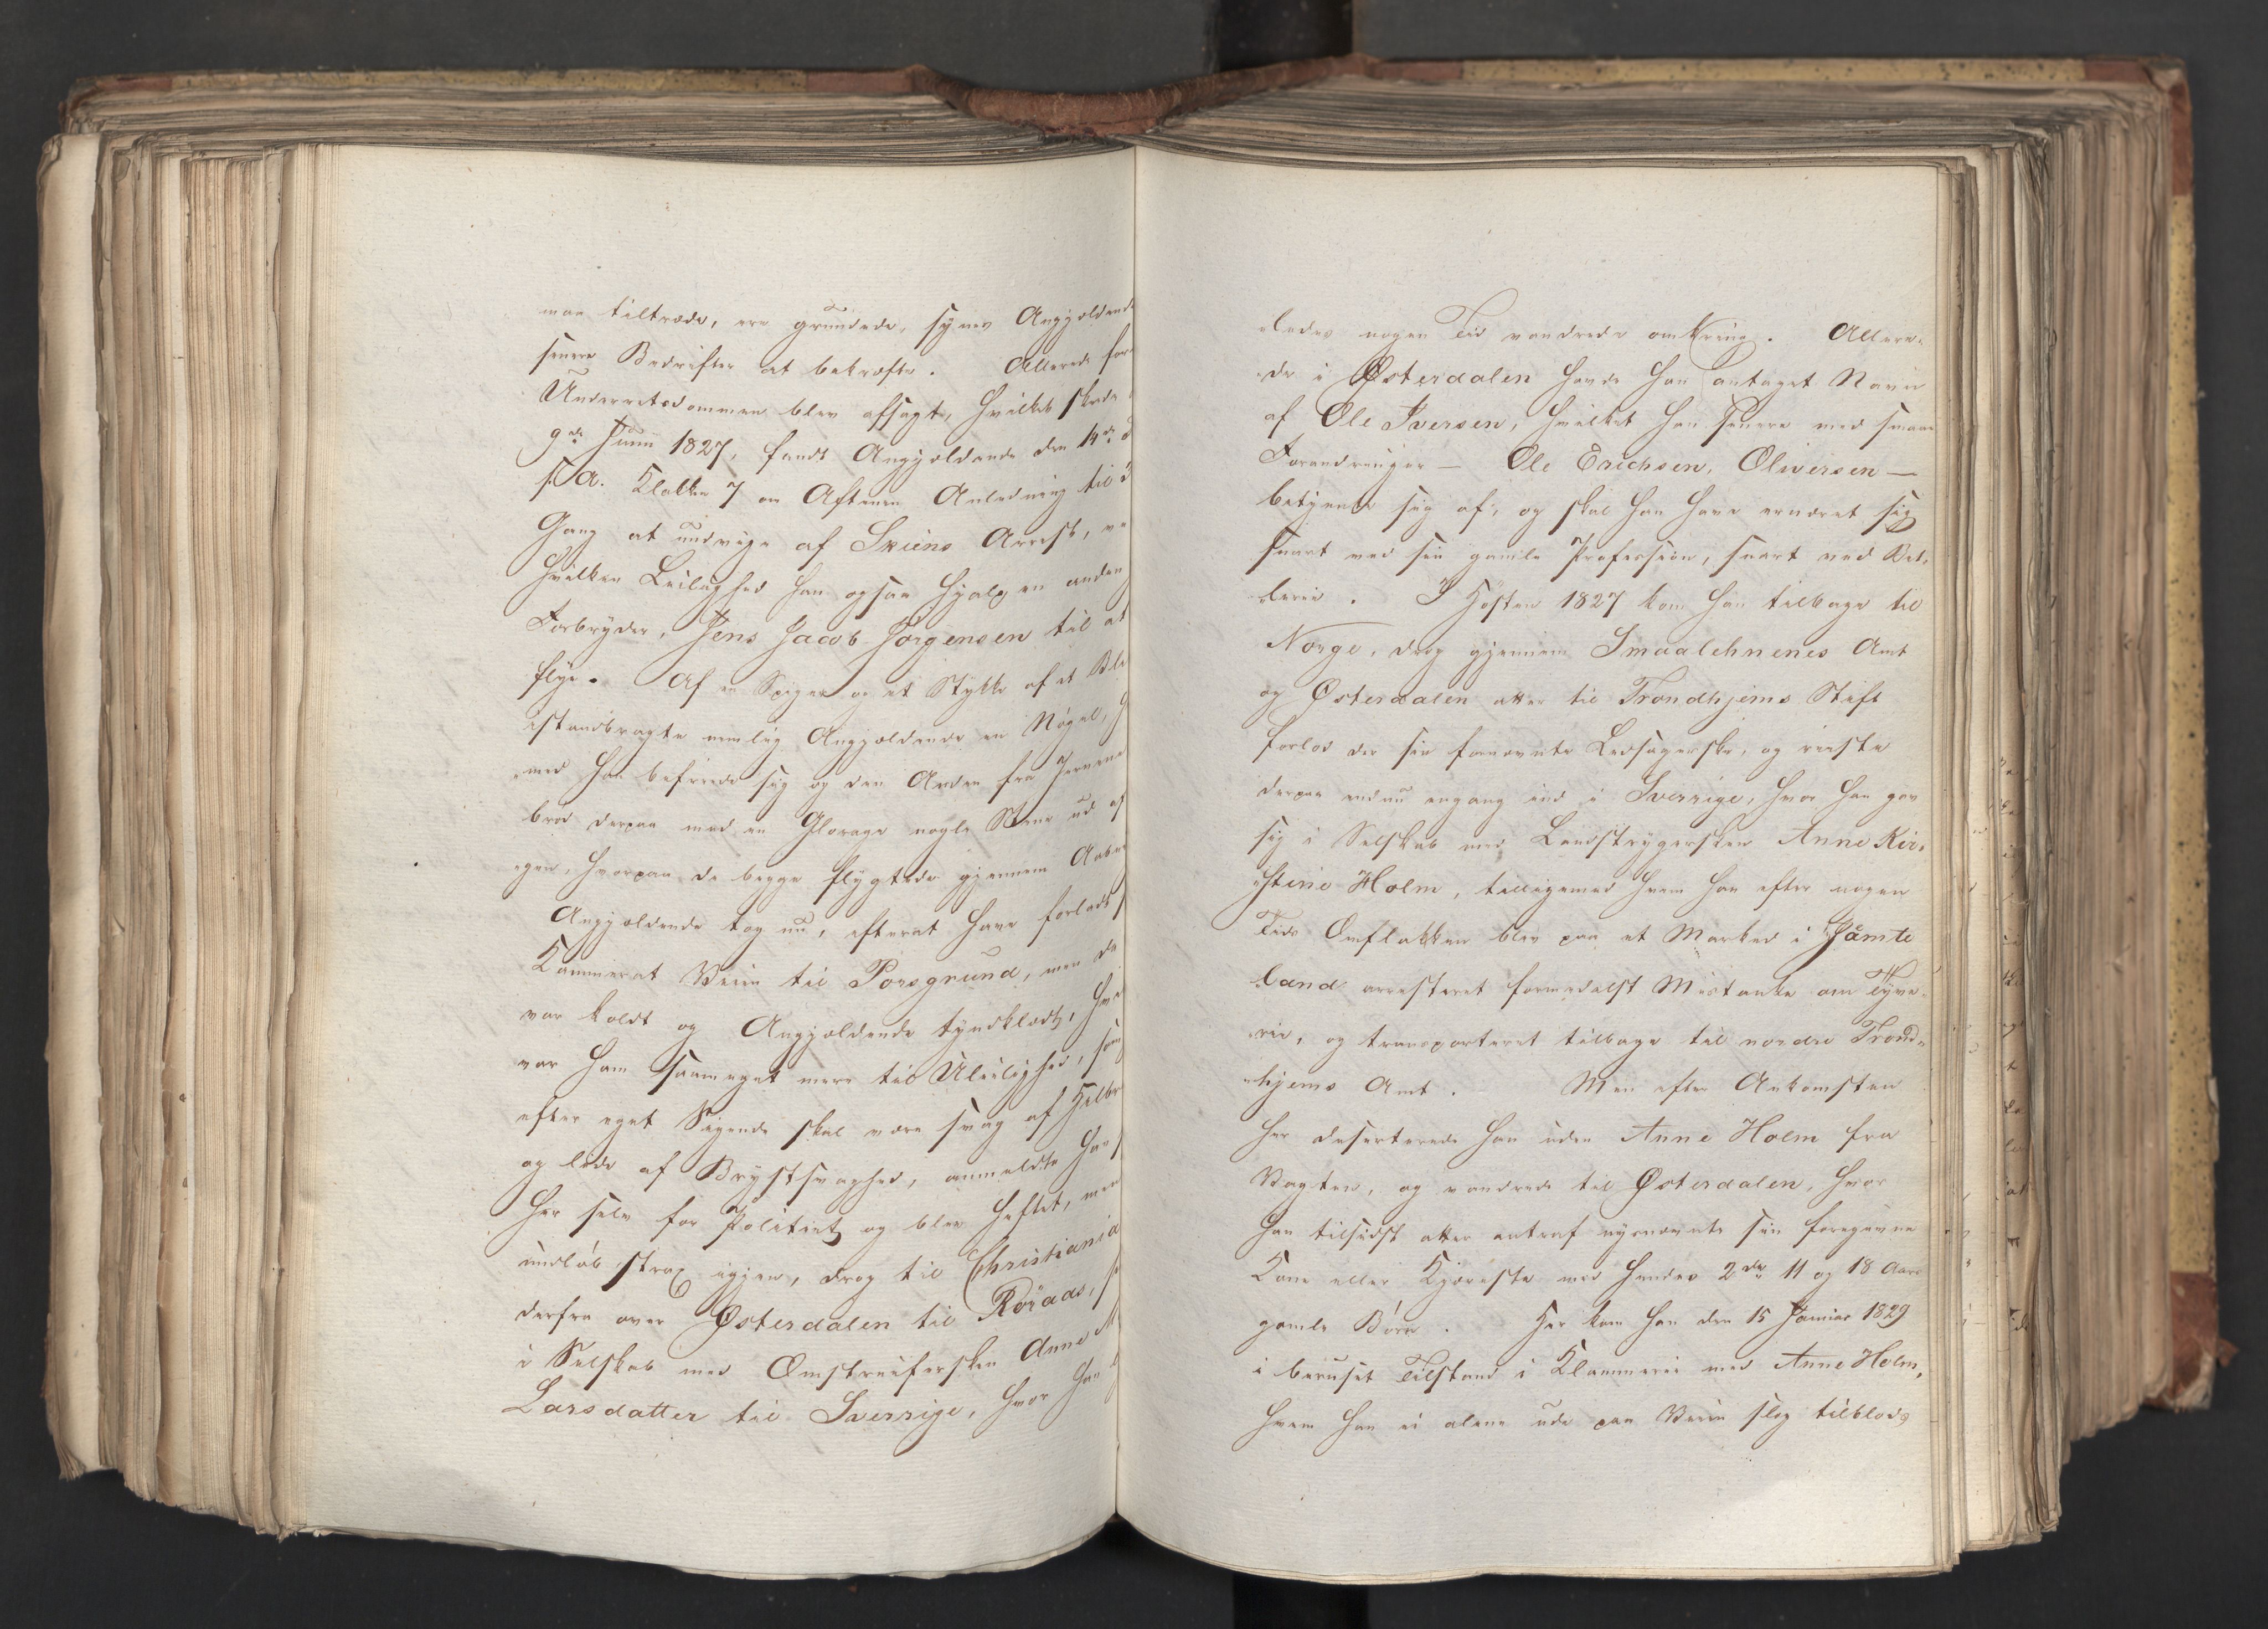 man tiltræde, ere grundede, synes Angjældende
senere Bedrifter at bekræfte. Allerede før
Underretsdommen blev afsagt, hvilket skede
9de Junii 1827, fandt Angjældende den 14de
s. A. Klokken 7 om Aftenen Anledning til
Gang at undvige af Skiens Arrest, ve
hvilken Leilighed han ogsaa hjalp en anden
Forbryder, Jens Jacob Jørgensen til at
flye. Af en Spiger og et Stykke af et
istandbragte nemlig Angjældende en Nøgel,
med han befriede sig og den Anden fra Jernene
brød derpaa med en Glorage nogle Stene ud af
gen, hvorpaa de begge flygtede gjennem
Angjældende tog nu, efterat have forladt
Kammerat Veien til Porsgrund, men da
var koldt og Angjældende tyndklædt,
var ham saameget mere til Uleilighed, som
efter eget Sigende skal være svag af Helbr
og lede af Brystsvaghed, anmeldte han
her selv for Politiet og blev heftet, men
undløb strax igjen, drog til Christiania
derfra over Østerdalen til Röraas,
i Selskab med Omstreifersken Anne M
Larsdatter til Sverrige, hvor han
ledes nogen Tid vandrede omkring. Allere-
de i Østerdalen havde han antaget Navn
af Ole Iversen, hvilket han senere med smaae
Forandringer — Ole Erichsen, Oliversen —
betjente sig af, og skal han have ernæret sig
snart ved sin gamle Profession, snart ved Bet-
lerie. I Høsten 1827 kom han tilbage til
Norge, drog gjennem Smaalehnenes Amt
og Østerdalen atter til Trondhjems Stift
forlod der sin fornævnte Ledsagerske, og reiste
derpaa endnu engang ind i Sverrige, hvor han gav
sig i Selskab med Landstrygersken Anne Kir-
stine Holm, tilligemed hvem han efter nogen
Tids Omflakken blev paa et Marked i Jämte
land arresteret formedelst Mistanke om Tyve-
rie, og transporteret tilbage til nordre Trond-
hjems Amt. Men efter Ankomsten
her deserterede han uden Anne Holm fra
Vagten, og vandrede til Østerdalen, hvor
han tilsidst atter antraf nysnævnte sin foregivne
Kone eller Kjæreste med hendes 2de 11 og 18 Aar
gamle Børn. Her kom han den 15 Januar 1829
i beruset Tilstand i Klammerie med Anne Holm,
hvem han ei alene ude paa Veien slog tilblods